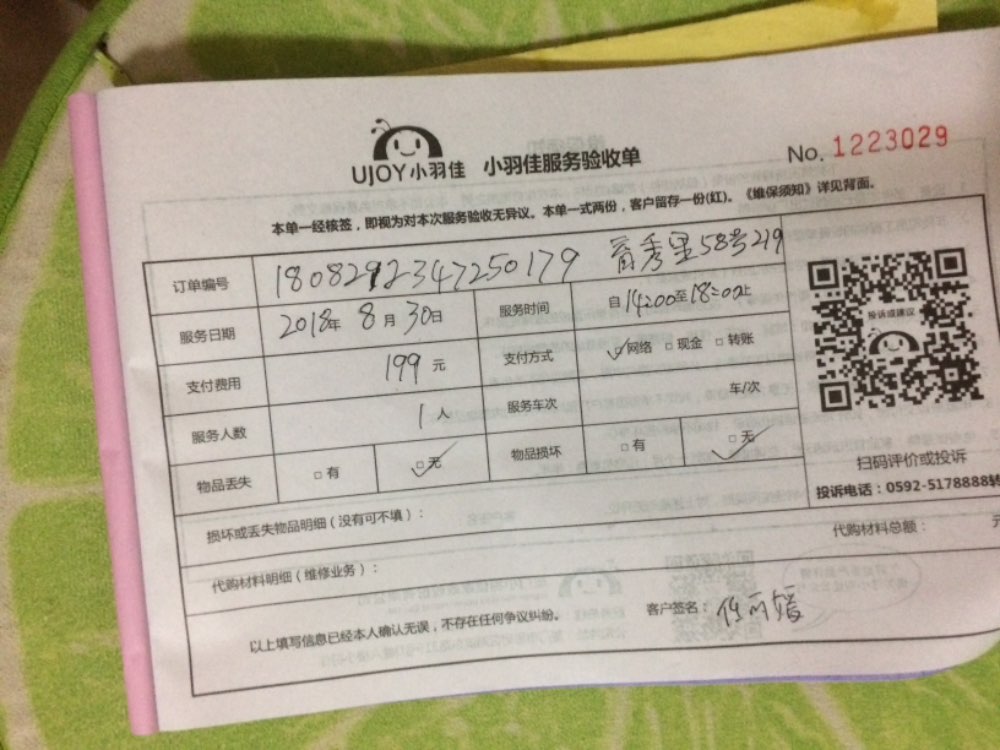 UJOY小羽佳 小羽佳服务验收单 No. 1223029
本单一经核签，即视为对本次服务验收无异议。本单一式两份，客户留存一份(红)。《维保须知》详见背面。
订单编号 1808292347250179 秀里58号219
服务日期 2018年 8月 30日 服务时间 自14:00至18:00止
投诉或建议
支付费用 199元 支付方式 ☑网络 □现金 □转账
服务人数 1人 服务车次 车/次
物品丢失 □有 ☑无 物品损坏 □有 ☑无
扫码评价或投诉
投诉电话：0592-5178888转
损坏或丢失物品明细（没有可不填）：
代购材料明细（维修业务）： 代购材料总额： 元
以上填写信息已经本人确认无误，不存在任何争议纠纷。 客户签名：